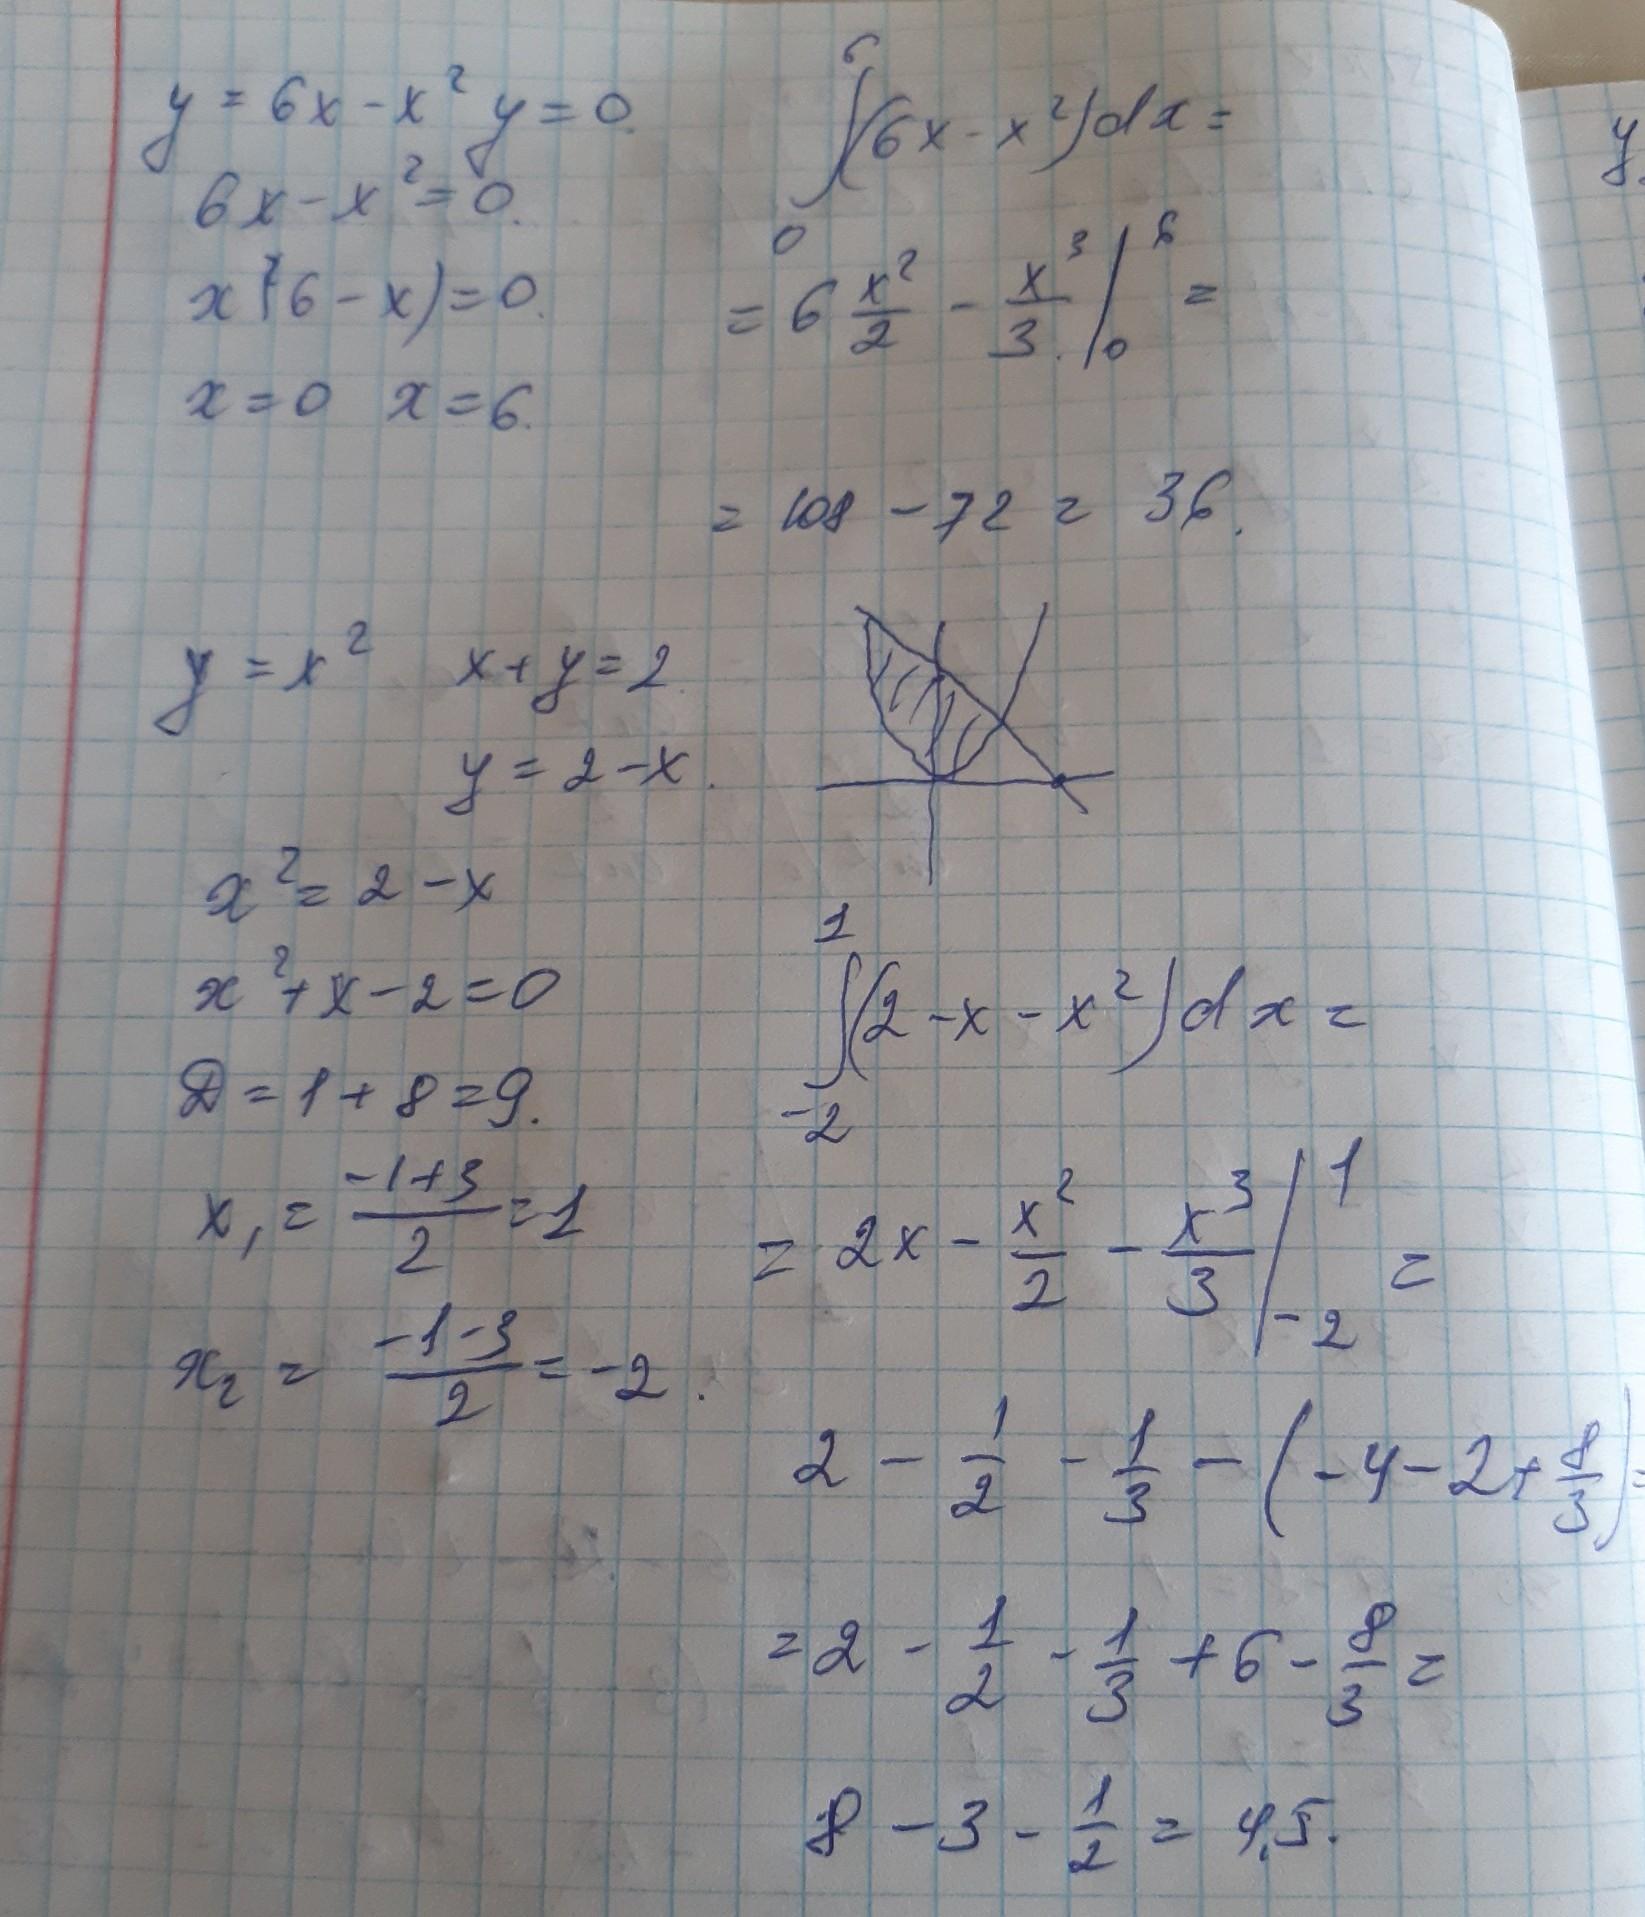 y = 6x - x² y = 0.
6x - x² = 0.
x(6 - x) = 0.
x = 0 x = 6.
∫₀⁶(6x - x²)dx =
= 6 x²/2 - x³/3 |₀⁶ =
= 108 - 72 = 36.
y = x² x + y = 2.
y = 2 - x.
x² = 2 - x
x² + x - 2 = 0
D = 1 + 8 = 9.
x₁ = (-1+3)/2 = 1
x₂ = (-1-3)/2 = -2.
∫₋₂¹(2 - x - x²)dx =
= 2x - x²/2 - x³/3 |₋₂¹ =
2 - 1/2 - 1/3 - (-4 - 2 + 8/3) =
= 2 - 1/2 - 1/3 + 6 - 8/3 =
8 - 3 - 1/2 = 4,5.